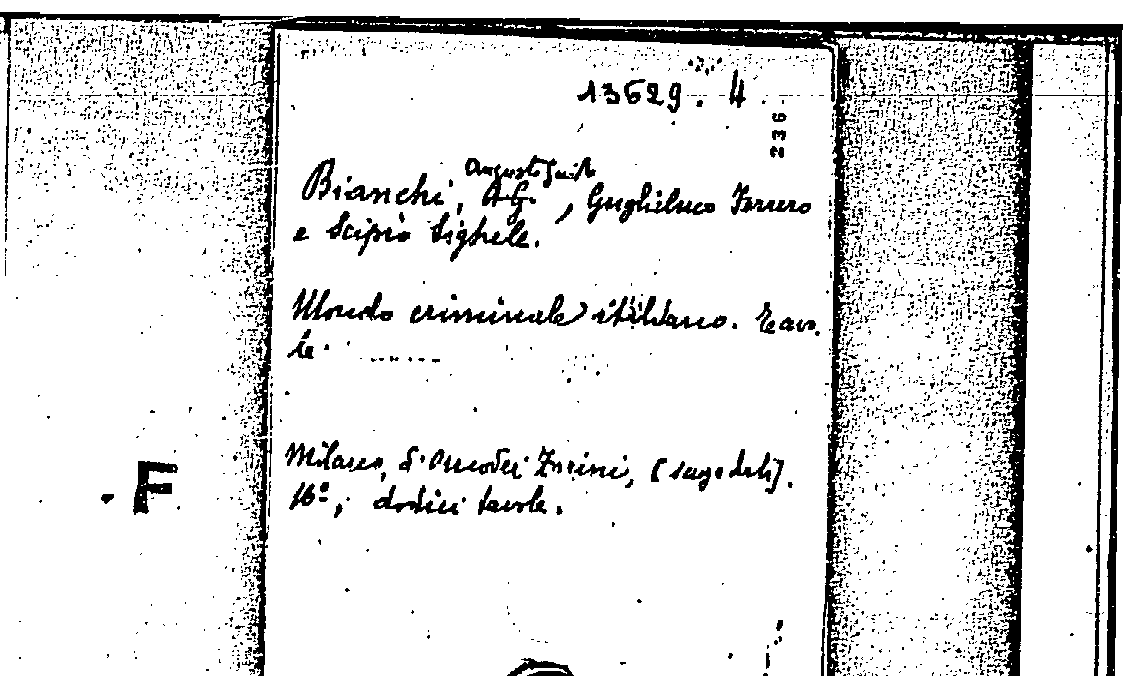 13629. 4
236
Augusto Guido
Bianchi, A.G., Guglielmo Ferrero
e Scipio Sighele.
Mondo criminale italiano. Tavo
le.
Milano, Zorini, [ ].
16º; dodici tavole.
F